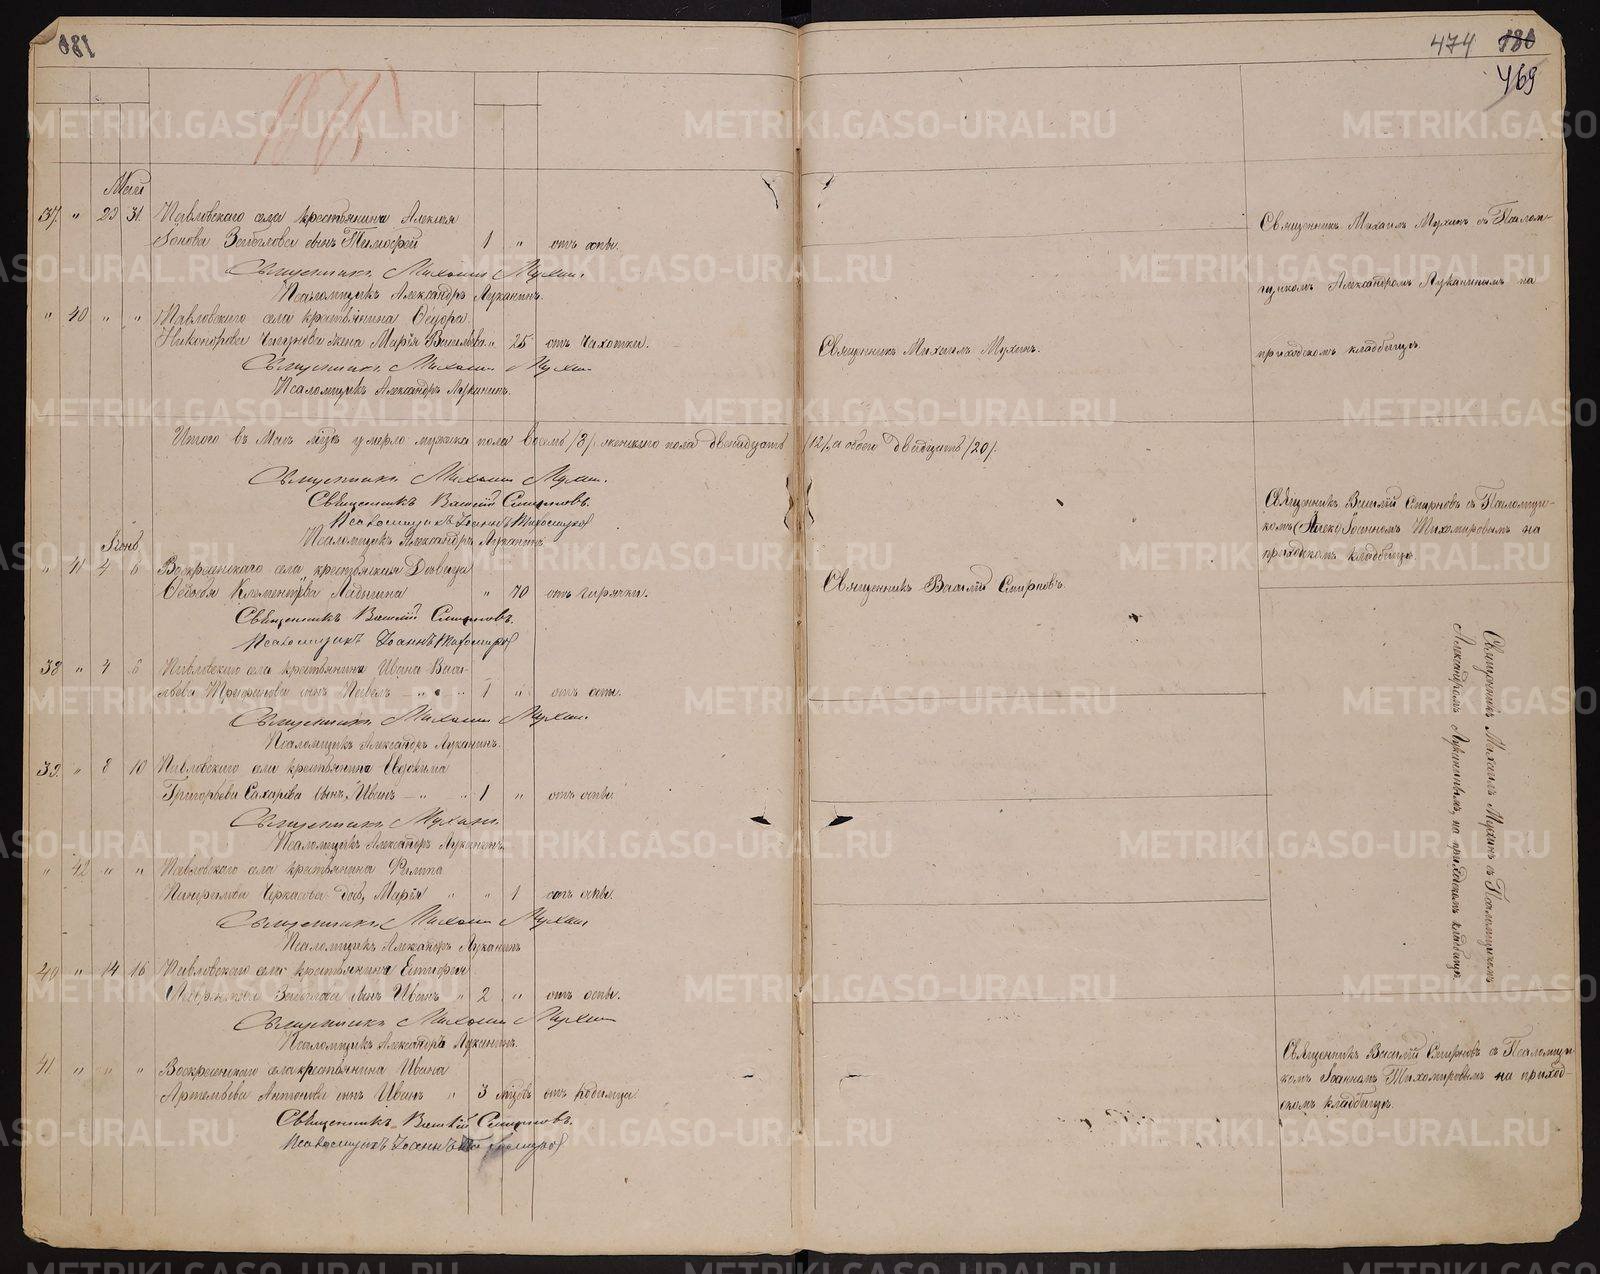 180
474 180
469
Май
37. " 29 31. Павловскаго села крестьянина Алексѣя
Іонова сынъ Тимофей 1 " отъ оспы.
Священникъ Михаилъ Мухинъ.
Псаломщикъ Александръ Луканинъ.
" 40 " " Павловскаго села крестьянина Ѳедора
Никонорова жена Марія Васильева " 25 отъ чахотки.
Священникъ Михаилъ Мухинъ
Псаломщикъ Александръ Луканинъ.
Священникъ Михаилъ Мухинъ.
Священникъ Михаилъ Мухинъ съ Псалом-
щикомъ Александромъ Луканинымъ на
приходскомъ кладбищѣ.
Итого въ Маѣ мцѣ умерло мужеска пола восемь /8/ женскаго пола двенадцать /12/, а обоего двадцать /20/.
Священникъ Михаилъ Мухинъ.
Священникъ Василій Смирновъ.
Псаломщикъ Іоаннъ Тихомировъ
Псаломщикъ Александръ Луканинъ
Іюнь
" 41 4 6 Воскресенскаго села крестьянская Дѣвица
Ѳедосья Климентьева " 70 отъ горячки.
Священникъ Василій Смирновъ.
Псаломщикъ Іоаннъ Тихомировъ
Священникъ Василій Смирновъ.
Священникъ Василій Смирновъ съ Псаломщи-
комъ (Алек) Іоанномъ Тихомировымъ на
приходскомъ кладбищѣ.
38 " 4 6 Павловскаго села крестьянина Ивана Васи-
льева сынъ Павелъ " " 1 " отъ оспы.
Священникъ Михаилъ Мухинъ.
Псаломщикъ Александръ Луканинъ.
39. " 8 10 Павловскаго села крестьянина Евдокима
Григорьева сынъ Иванъ " " 1 " отъ оспы
Священникъ Мухинъ.
Псаломщикъ Александръ Луканинъ.
" 42 " " Павловскаго села крестьянина Филипа
Панфилова Черкасова дочь Марія " " 1 отъ оспы.
Священникъ Михаилъ Мухинъ
Псаломщикъ Александръ Луканинъ
40 " 14 16 Павловскаго села крестьянина
сынъ Иванъ " 2 " отъ оспы.
Священникъ Михаилъ Мухинъ
Псаломщикъ Александръ Луканинъ.
Священникъ Михаилъ Мухинъ съ Псаломщикомъ
Александромъ Луканинымъ, на приходскомъ кладбищѣ.
41 " " " Воскресенскаго села крестьянина Ивана
Артемьева Антонова сынъ Иванъ " 3 мцовъ отъ родимца
Священникъ Василій Смирновъ.
Псаломщикъ Іоаннъ Тихомировъ
Священникъ Василій Смирновъ съ Псаломщи-
комъ Іоанномъ Тихомировымъ на приход-
скомъ кладбищѣ.
METRIKI.GASO-URAL.RU